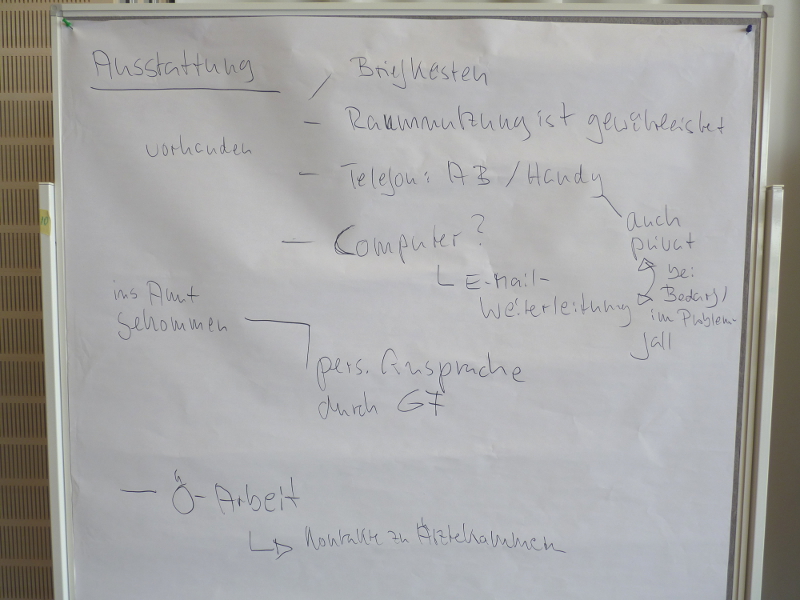 Ausstattung
/ Briefkasten
– Raumnutzung ist gewährleistet
vorhanden
– Telefon: AB / Handy
auch
privat
– Computer?
E-Mail-
Weiterleitung
bei
Bedarf/
im Problem-
fall
ins Amt
gekommen
pers. Ansprache
durch GF
– Ö-Arbeit
Kontakte zu Ärztekammern